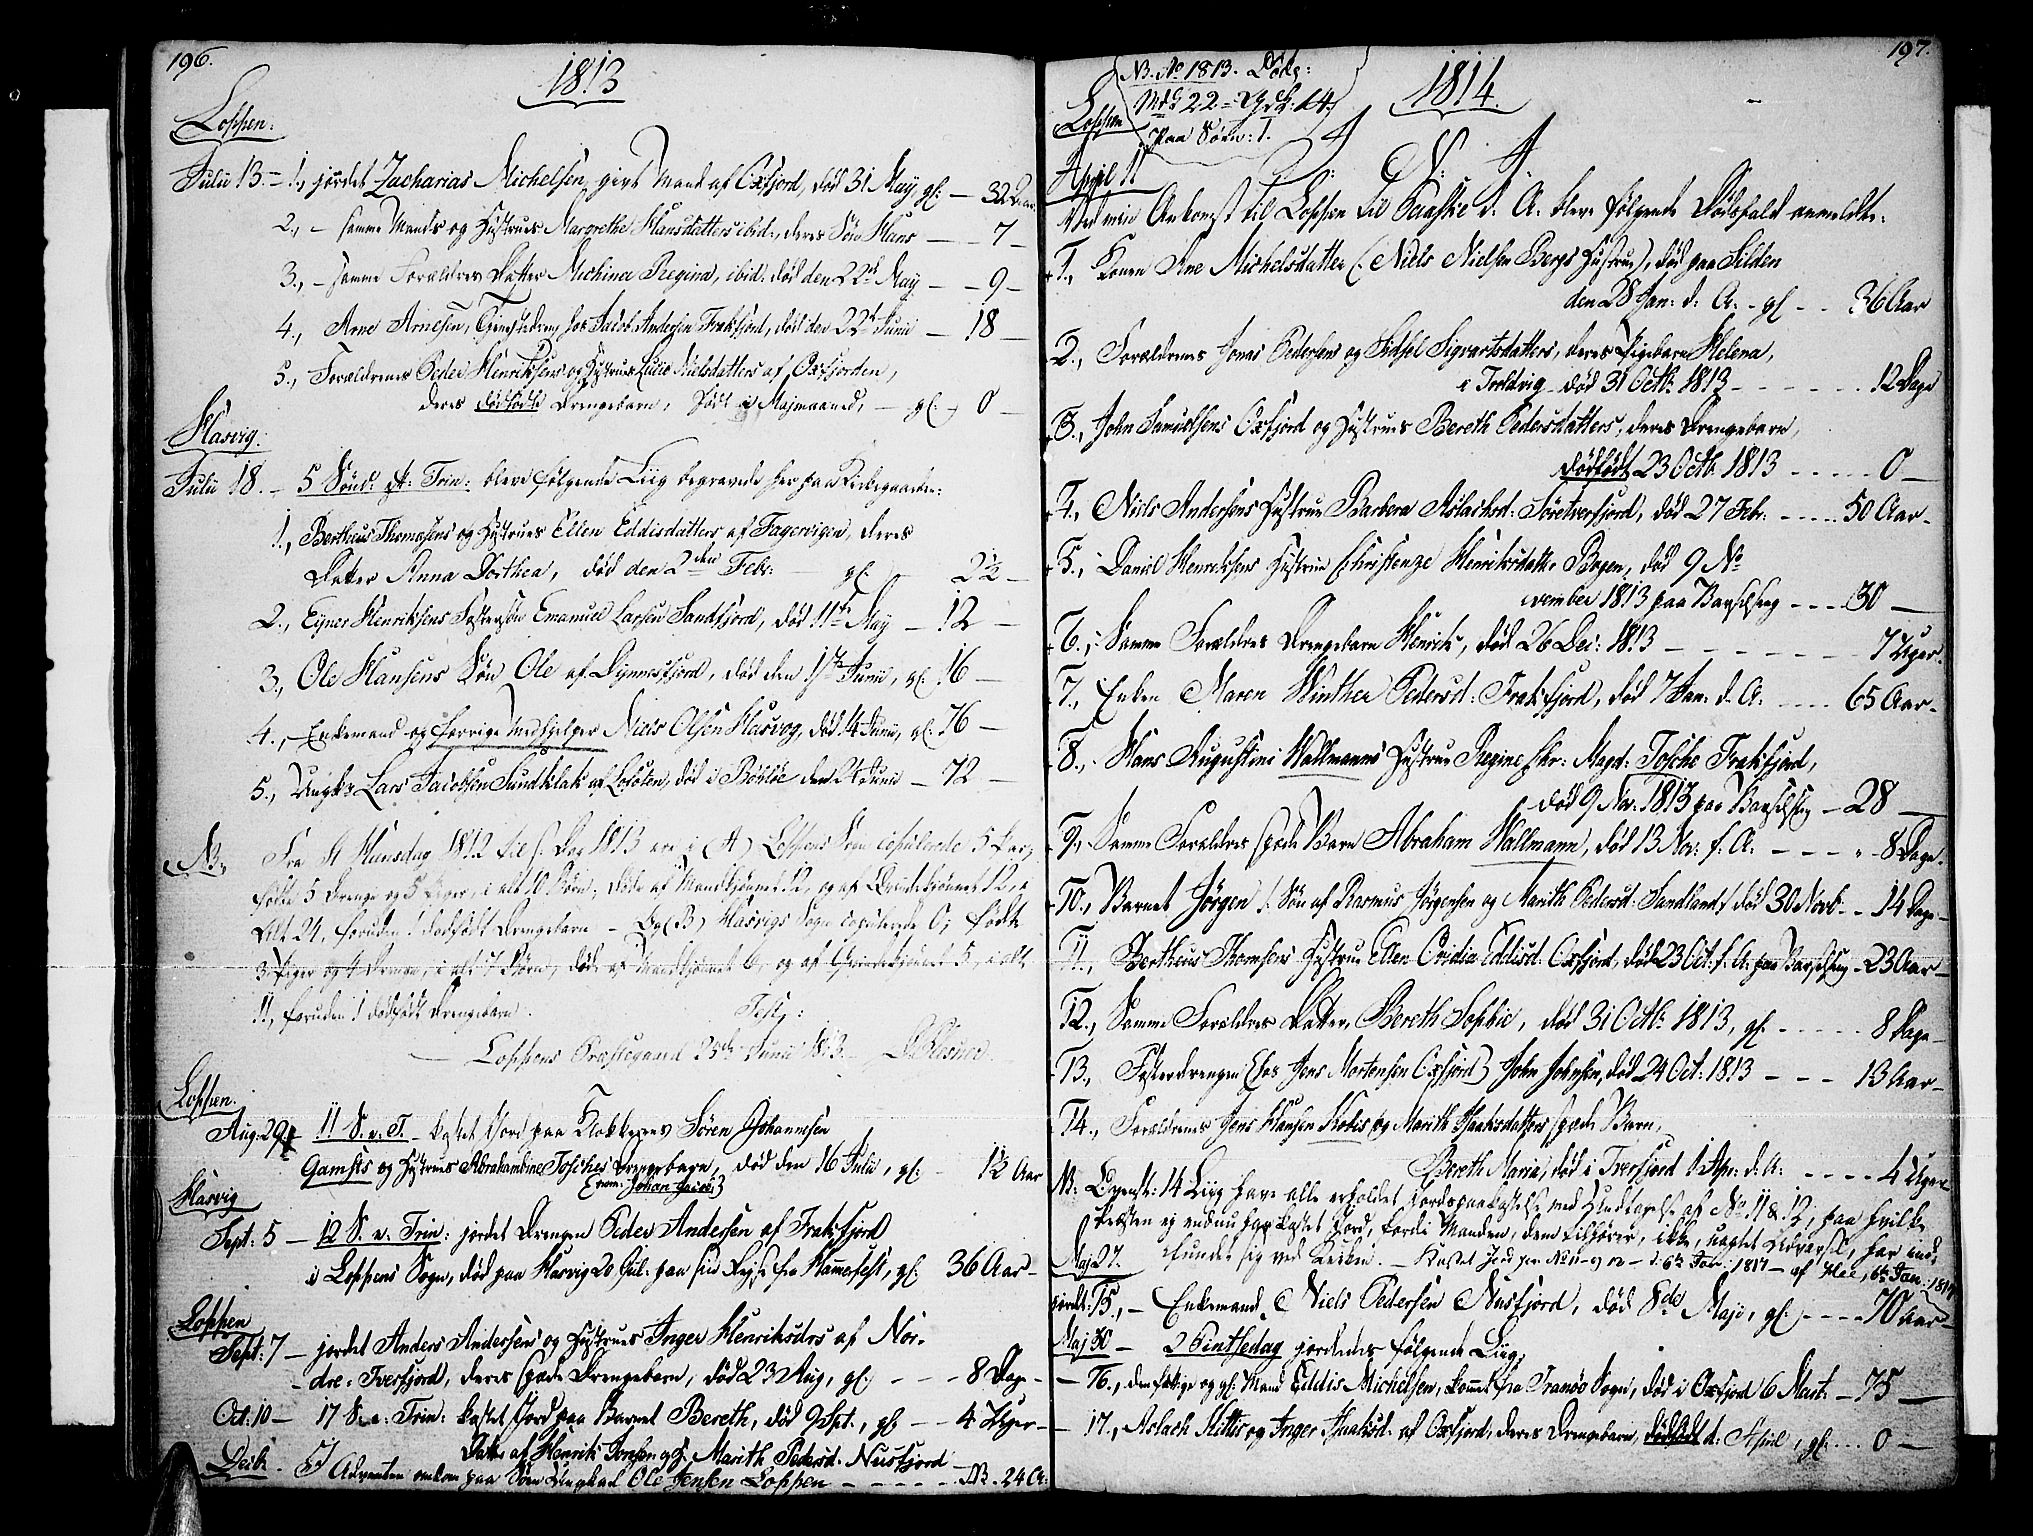 196.
1813
Loppen:
Julii 13. – 1., jordet Zacharias Michelsen, givt Mand af Oxfjord, død 31 May, gl: – 32 Aar
2., – samme Mands og Hustrues Margrethe Hansdatters ibid:, deres Søn Hans – – 7 –
3., – samme Forældres Datter Michina Regina, ibid: død den 22d May – – 9 –
4., Arne Arnesen, Tjenestedreng hos Jacob Andersen Frakfjord, død den 22d Junii – 18 –
5., Forældrenes Peder Henriksens og Hustrues Lucie Nielsdatters af Oxfjorden,
deres dødfødte Drengebarn, født i Majmaaned, – gl: – 0 –
Hasvig:
Julii 18. – 5 Sønd: p: Trin: bleve følgende Liig begravede her paa Kirkegaarden:
1., Bertheus Thomesens og Hustrues Ellen Eddisdatters af Fagervigen, deres
Datter Anna Dorthea, død den 2den Febr: gl: – 2½ –
2., Eyner Henriksens Fostersøn Emanuel Larsen Sandfjord, død 11te May – 12 –
3., Ole Hansens Søn Ole af Dynnesfjord, død den 1ste Junii, gl: 16 –
4., Enkemand og forrige Medhjelper Niels Olsen Hasvog, død 14 Junii, gl: 76 –
5., Lars Jacobsen Sundklak af Lofoten, død i den 24 Junii – 72 –
NB: Fra St Hansdag 1812 til s. Dag 1813 ere i (A) Loppens Sogn copulerede 5 Par,
fødte 5 Drenge og 5 Piger, i alt 10 Børn; døde af Mandkjønnet 12, og af Qvindekjønnet 12, i
Alt 24, foruden 1 dødfødt Drengebarn – Og (B) Hasvigs Sogn copulerede 0; fødte
3 Piger og 4 Drenge, i alt 7 Børn, døde af Mandkjønnet 6, og af Qvindekjønnet 5, i alt
11, foruden 1 dødfødt Drengebarn.
Test:
Loppens Præstegaard 25de Junii 1813
Loppen.
Aug: 29 – 11 S. e. T. kastet Jord paa Klokkerens Søren Johannesen
Gamsts og Hustrues Abrahamine Tosches Drengebarn, død den 16 Julii, gl: – 1½ Aar
Johan Jacob
Hasvig
Sept: 5 – 12 S. e. Trin: jordet Drengen Peder Andersen af Frakfjord
i Loppens Sogn, død paa Hasvig 20 Jul: paa sin Rejse fra Hammerfest, gl: 36 Aar –
Loppen
Sept: 7 – jordet Anders Andersens og Hustrues Inger Henriksdrs af Nor-
dre: Tverfjord, deres spæde Drengebarn, død 23 Aug, gl: – – – 8 Dage –
Oct: 10 – 17 S. e: Trin: kastet Jord paa Barnet Bereth, død 9 Sept., gl: – – 4 Uger –
Datter af Henrik Jonsen og H. Marith Pedersd. Nusfjord
Decbr. Adventen omkom paa Søen Ungkarl Ole Jensen Loppen – – – – – NB. 24 A:
197.
NB. Ao 1813. Døde:
Mdk 22 = Qvdk: 14:
paa Søen: 1.
1814.
Loppen
I: N: J.
April 11
Ved min Ankomst til Loppen til Paaske d. A. bleve følgende Dødsfald anmeldte:
1., Konen Ane Michelsdatter (: Niels Nielsen Bergs Hustrue), død paa Silden
den 28 Jan: d. A. – gl – – 36 Aar
2., Forældrenes Jonas Pedersens og Sidsel Sigvartsdatters, deres Pigebarn Helena,
i Toldvig død 31 Octb: 1813 – – – – – – 12 Dage
3., John Samuelsens Oxfjord og Hustrues Bereth Pedersdatters, deres Drengebarn,
dødfødt 23 Octb: 1813 – – – – – 0 –
4., Niels Andersens Hustrue Barbera Aslachsd: Søretverfjord, død 27 Febr: – – – – 50 Aar –
5., Daniel Henriksens Hustrue Christenze Henriksdatt: Bogen, død 9 No
vember 1813 paa Barselseng – – – 30 –
6., Samme Forældres Drengebarn Henrik, død 26 Dec: 1813 – – – – – – – 7 Uger.
7., Enken Maren Winther Pedersd: Frakfjord, død 7 Jan: d. A: – – – – 65 Aar –
8., Hans Augustini Wallmanns Hustrue Regine Magd: Tosche Frakfjord,
død 9 Nov: 1813 paa Barselseng – 28 –
9., Samme Forældres spæde Barn Abraham Wallmann, død 13 Nov: f. A: – – – – 8 Dage.
10., Barnet Jørgen /: Søn af Rasmus Jørgensen og Marith Pedersd: Sandland :/ død 30 Novb. – 14 Dage –
11., Bertheus Thomsens Hustrue Ellen Ovidia Eddisd. Oxfjord, død 23 Oct: f. A: paa Barselseng – 23 Aar –
12., Samme Forældres Datter, Bereth Sophie, død 31 Octb: 1813, gl. – – – – – 8 Dage –
13., Fosterdrengen (hos Jens Mortensen Oxfjord) John Johnsen, død 24 Oct: 1813 – – – 13 Aar –
14., Forældrenes Jens Hansen Kobis og Marith Isaaksdatters spæde Barn,
Bereth Maria, død i Tverfjord 1 Apr: d. A: – – – – 4 Uger
NB: Ovenst: 14 Liig have alle erholdet Jordspaakastelse med Undtagelse af No 11 & 12, paa hvilke
Præsten ej endnu har kastet Jord, fordi Manden, dem tilhører, ikke, uagtet Advarsel, har ind-
fundet sig ved Kirken. – Kastet Jord paa No 11 og 12 d. 6te Jan: 1817 – af
Maj 27.
jordet: 15., – Enkemand Niels Pedersen Nusfjord, død 8de Maji, gl: – – – – 70 Aar –
Maj 30 – 2 Pintsedag jordedes følgende Liig,
– 16., den fattige og gl: Mand Eddis Michelsen, kommet fra Tranøe Sogn, død i Oxfjord 6 Mart: – 75 –
– 17., Aslach Hittis og Inger Isaaksd. af Oxfjord, deres Drengebarn, dødfødt d: April, gl: . . . 0 –